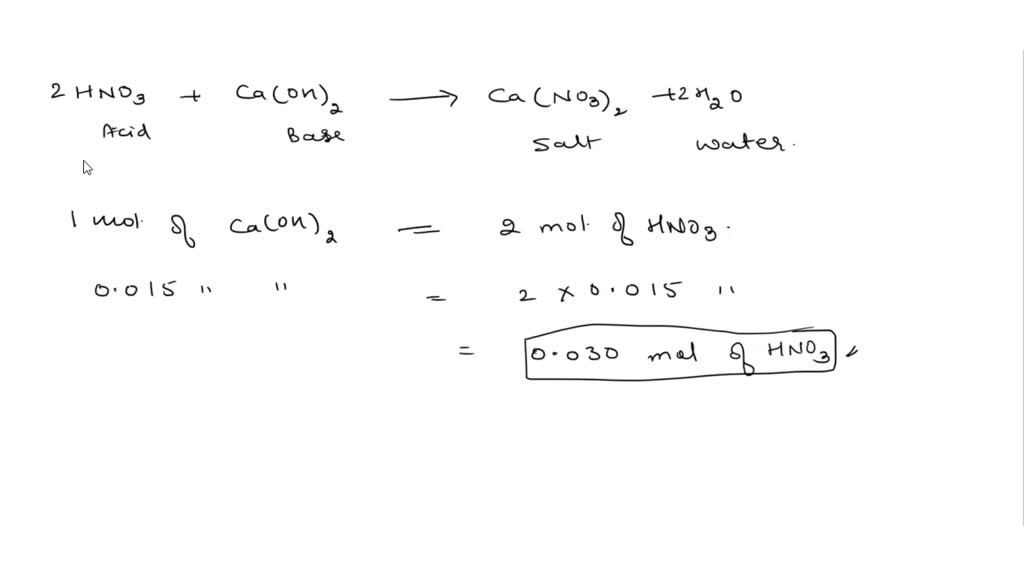 2 HNO3 + Ca(OH)2 ⟶ Ca(NO3)2 + 2H2O
Acid Base Salt water.
1 mol of Ca(OH)2 = 2 mol of HNO3.
0.015 " " = 2 × 0.015 "
= 0.030 mol of HNO3